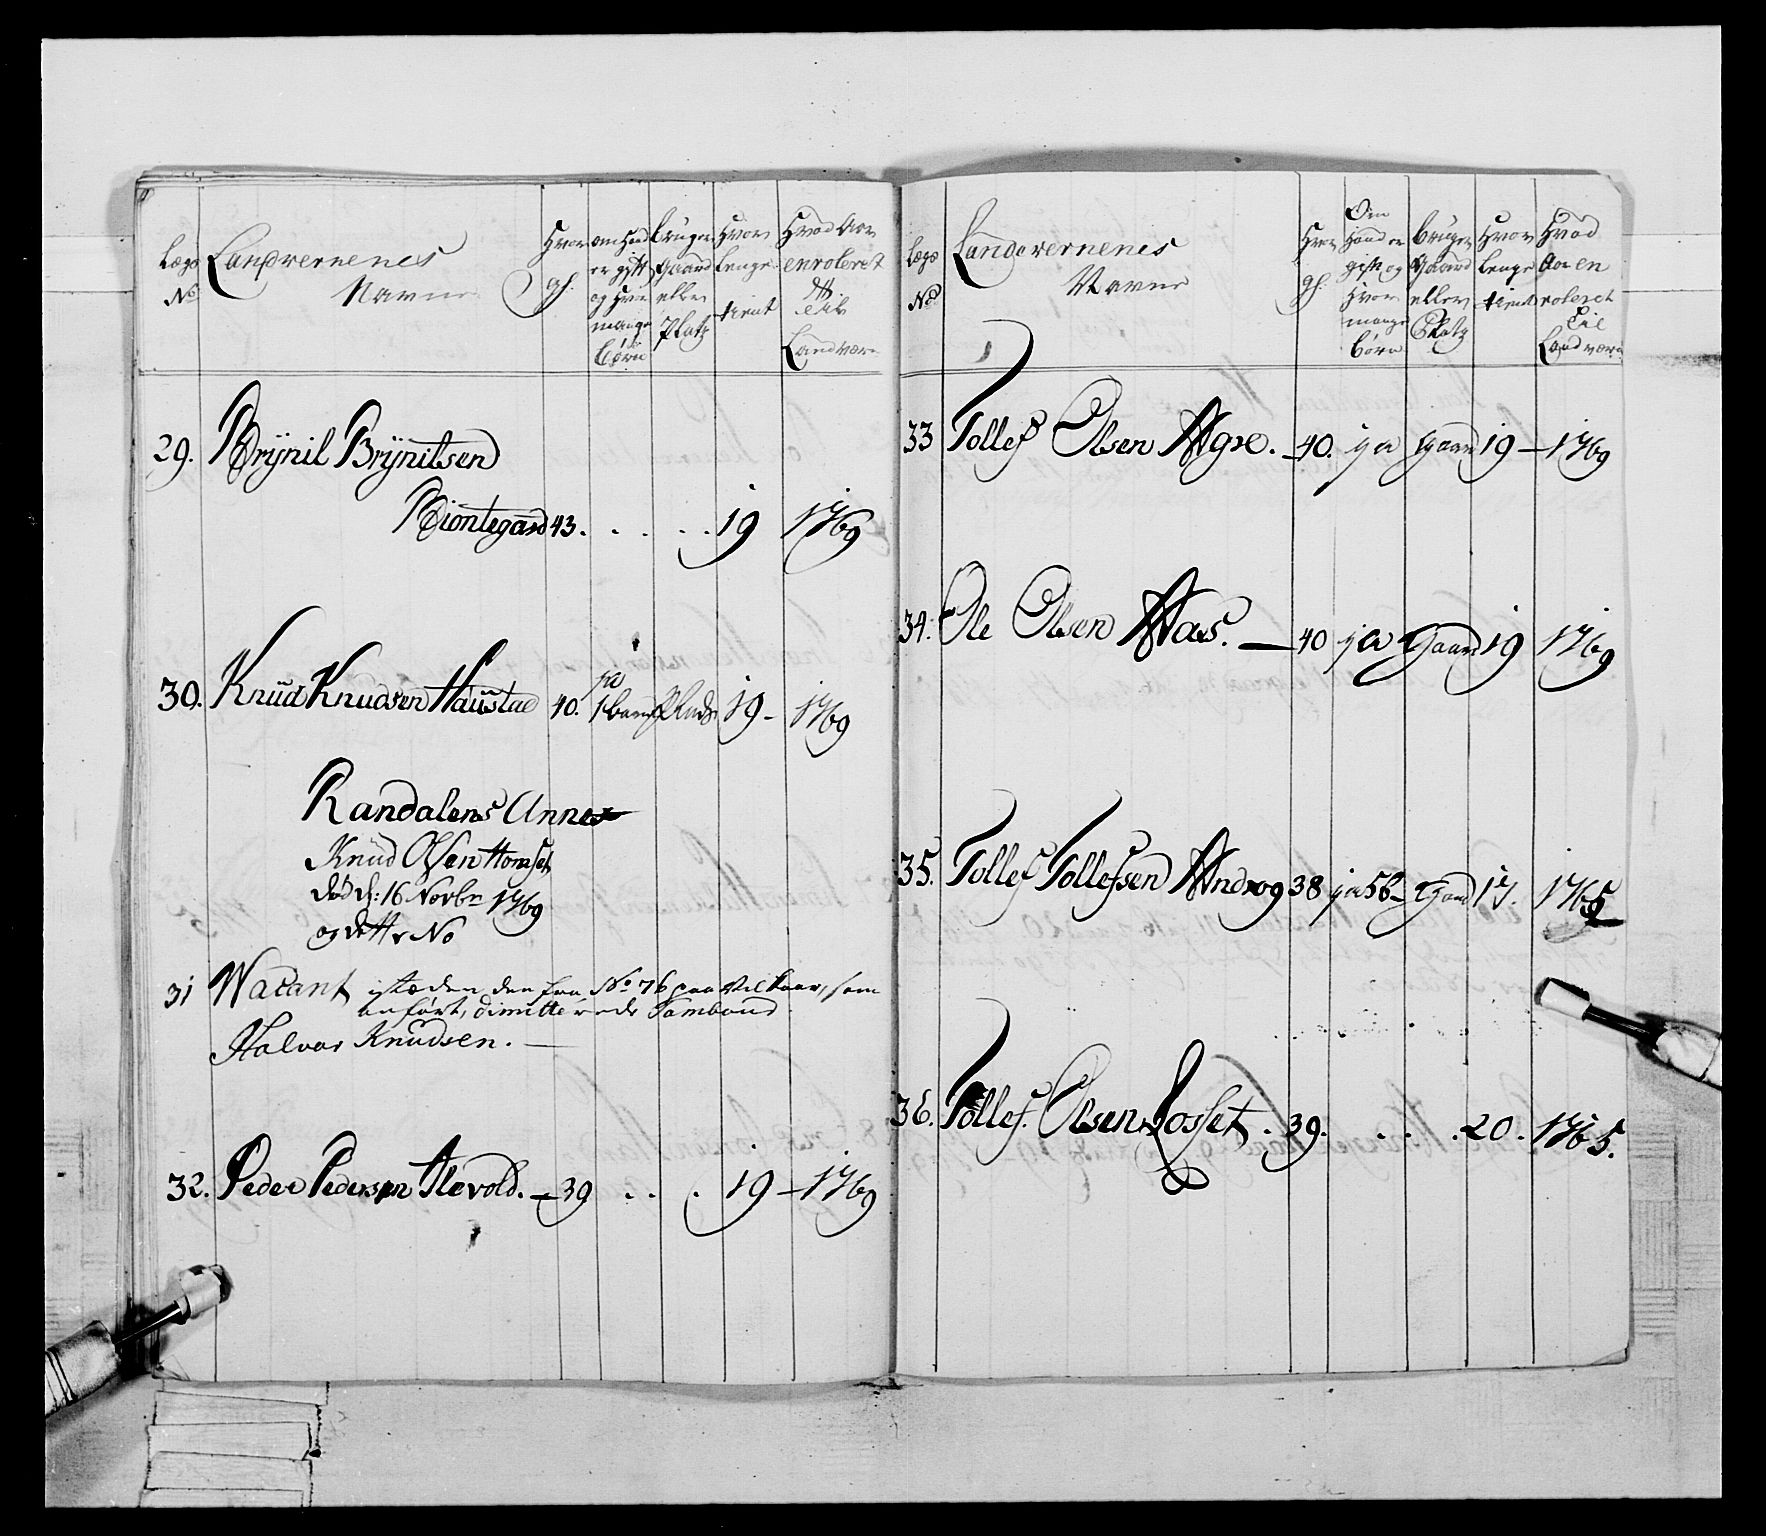 Lægs No
Landvernenes Navne
Hvor gl.
om hand er gift og hvor mange børn
bruger Gaard eller Platz
Hvor lenge tient
Hvad Aar enroleret til Landvær
29. Brynil Brynilsen
Biontegard 43. . . . . 19 1769
30. Knud Knudsen Haustad 40. ja 1 barn Plads 19 - 1769
Randalens Annex
Knud Olsen Homset
død d: 16 Novbr 1769
og dette No
31 Vacant istæden den fra No 76 paa Vilkaar, som
anført, dimitterede Tambour
Halvor Knudsen. —
32. Peder Pedersen Alevold. — 39 . . . 19 — 1769
Lægs No
Landevernenes Navne
Hvor gl.
Om hand er gift og hvor mange børn
bruger Gaard eller Platz
Hvor lenge tient
Hvad Aar enroleret til Landværn
33 Tollef Olsen Agre. — 40. ja Gaard 19 — 1769
34. Ole Olsen Aas. — 40 ja Gaard 19 1769
35. Tollef Tollefsen Androg 38 ja 5 b Gaard 17. 1765
36. Tollef Olsen Losset. 39. . . . 20. 1765.